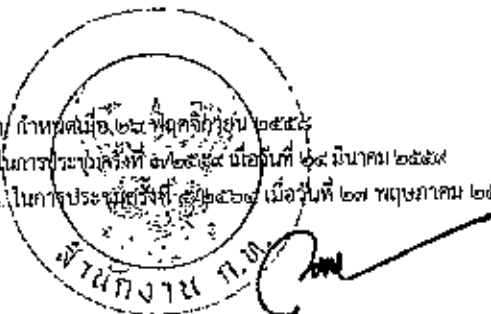 กำหนดเมื่อ ๒๖ พฤศจิกายน ๒๕๕๘
ในการประชุมครั้งที่ ๓/๒๕๕๙ เมื่อวันที่ ๒๔ มีนาคม ๒๕๕๙
ในการประชุมครั้งที่ เมื่อวันที่ ๒๗ พฤษภาคม
สำนักงาน ก.ท.